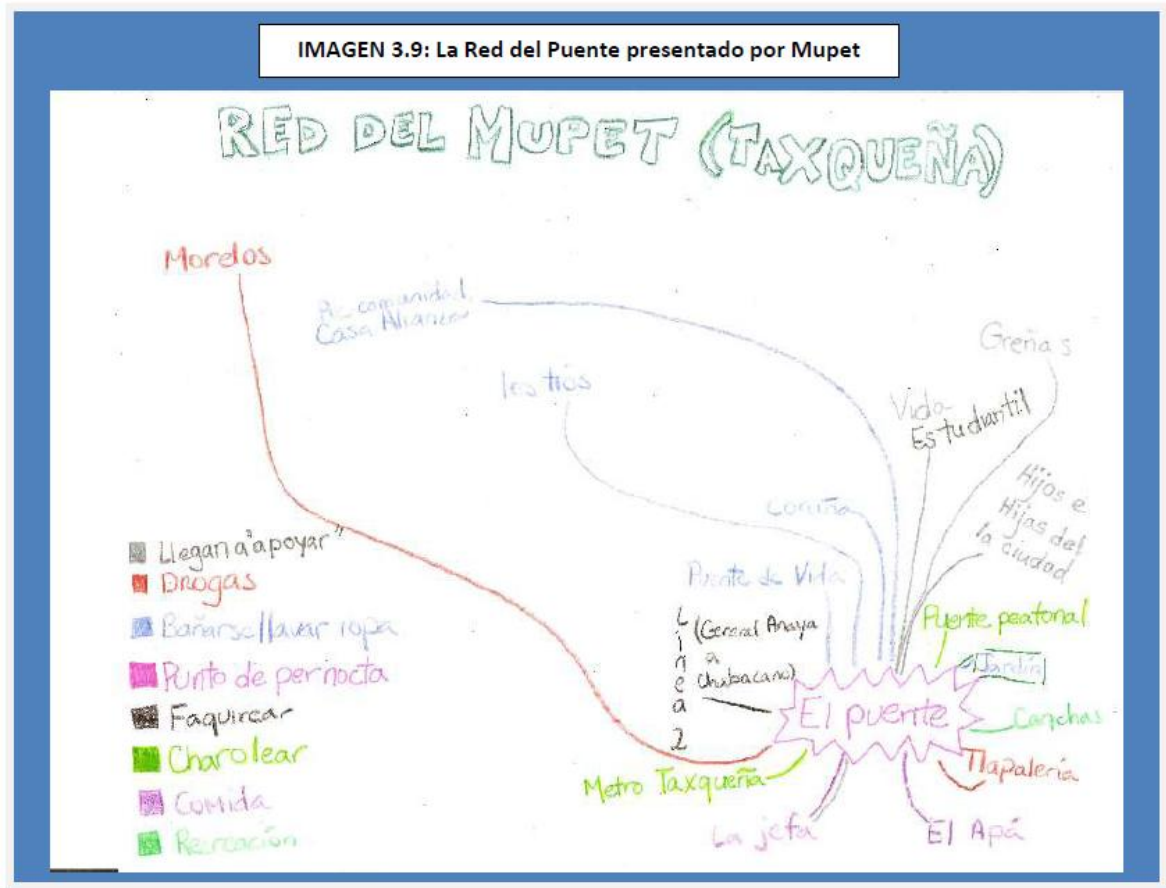 IMAGEN 3.9: La Red del Puente presentado por Mupet
RED DEL MUPET (TAXQUEÑA)
Morelos
comunidad
Casa Alianza
los tíos
Greñas
Vida
Estudiantil
Hijos e
Hijas del
la ciudad
Coruña
Puente de Vida
Línea 2
(General Anaya
a
Chabacano)
Puente peatonal
Jardín
El puente
Canchas
Tlapalería
Metro Taxqueña
La jefa
El Apá
Llegan a "apoyar"
Drogas
Bañarse/lavar ropa
Punto de pernocta
Faquirear
Charolear
Comida
Recreación